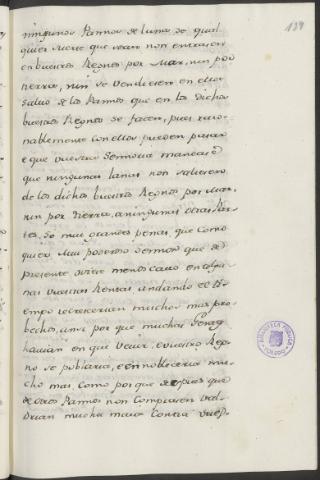 139
ningunos Pannos de luna de qual
quier suerte que sean non entrasen
en buestros Regnos por Mar, nin por
tierra, nin se vendiesen en ellos
salvo de los Pannos que en los dichos
buestros Regnos se facen, pues razo
nablemente con ellos pueden pasar
e que vuestra Sennoria mandase
que ningunas lanas non saliesen
de los dichos buestros Regnos por Mar,
nin por tierra, a ningunas otras Par
tes, so muy grandes penas, que como
quier Muy poderoso Sennor que de
presente oviese menos cavo en
nas vuestras Rentas andando el ti
empo recrecerian muchos mas pro
bechos, uno por que muchas Gentes
havrian en que vevir, e vuestro Reg
no se poblaria, e ennobleceria mu
cho mas, como por que despues que
de otros Pannos non comprasen val
drian mucha mas
BIBLIOTECA PUBLICA
TOLEDO